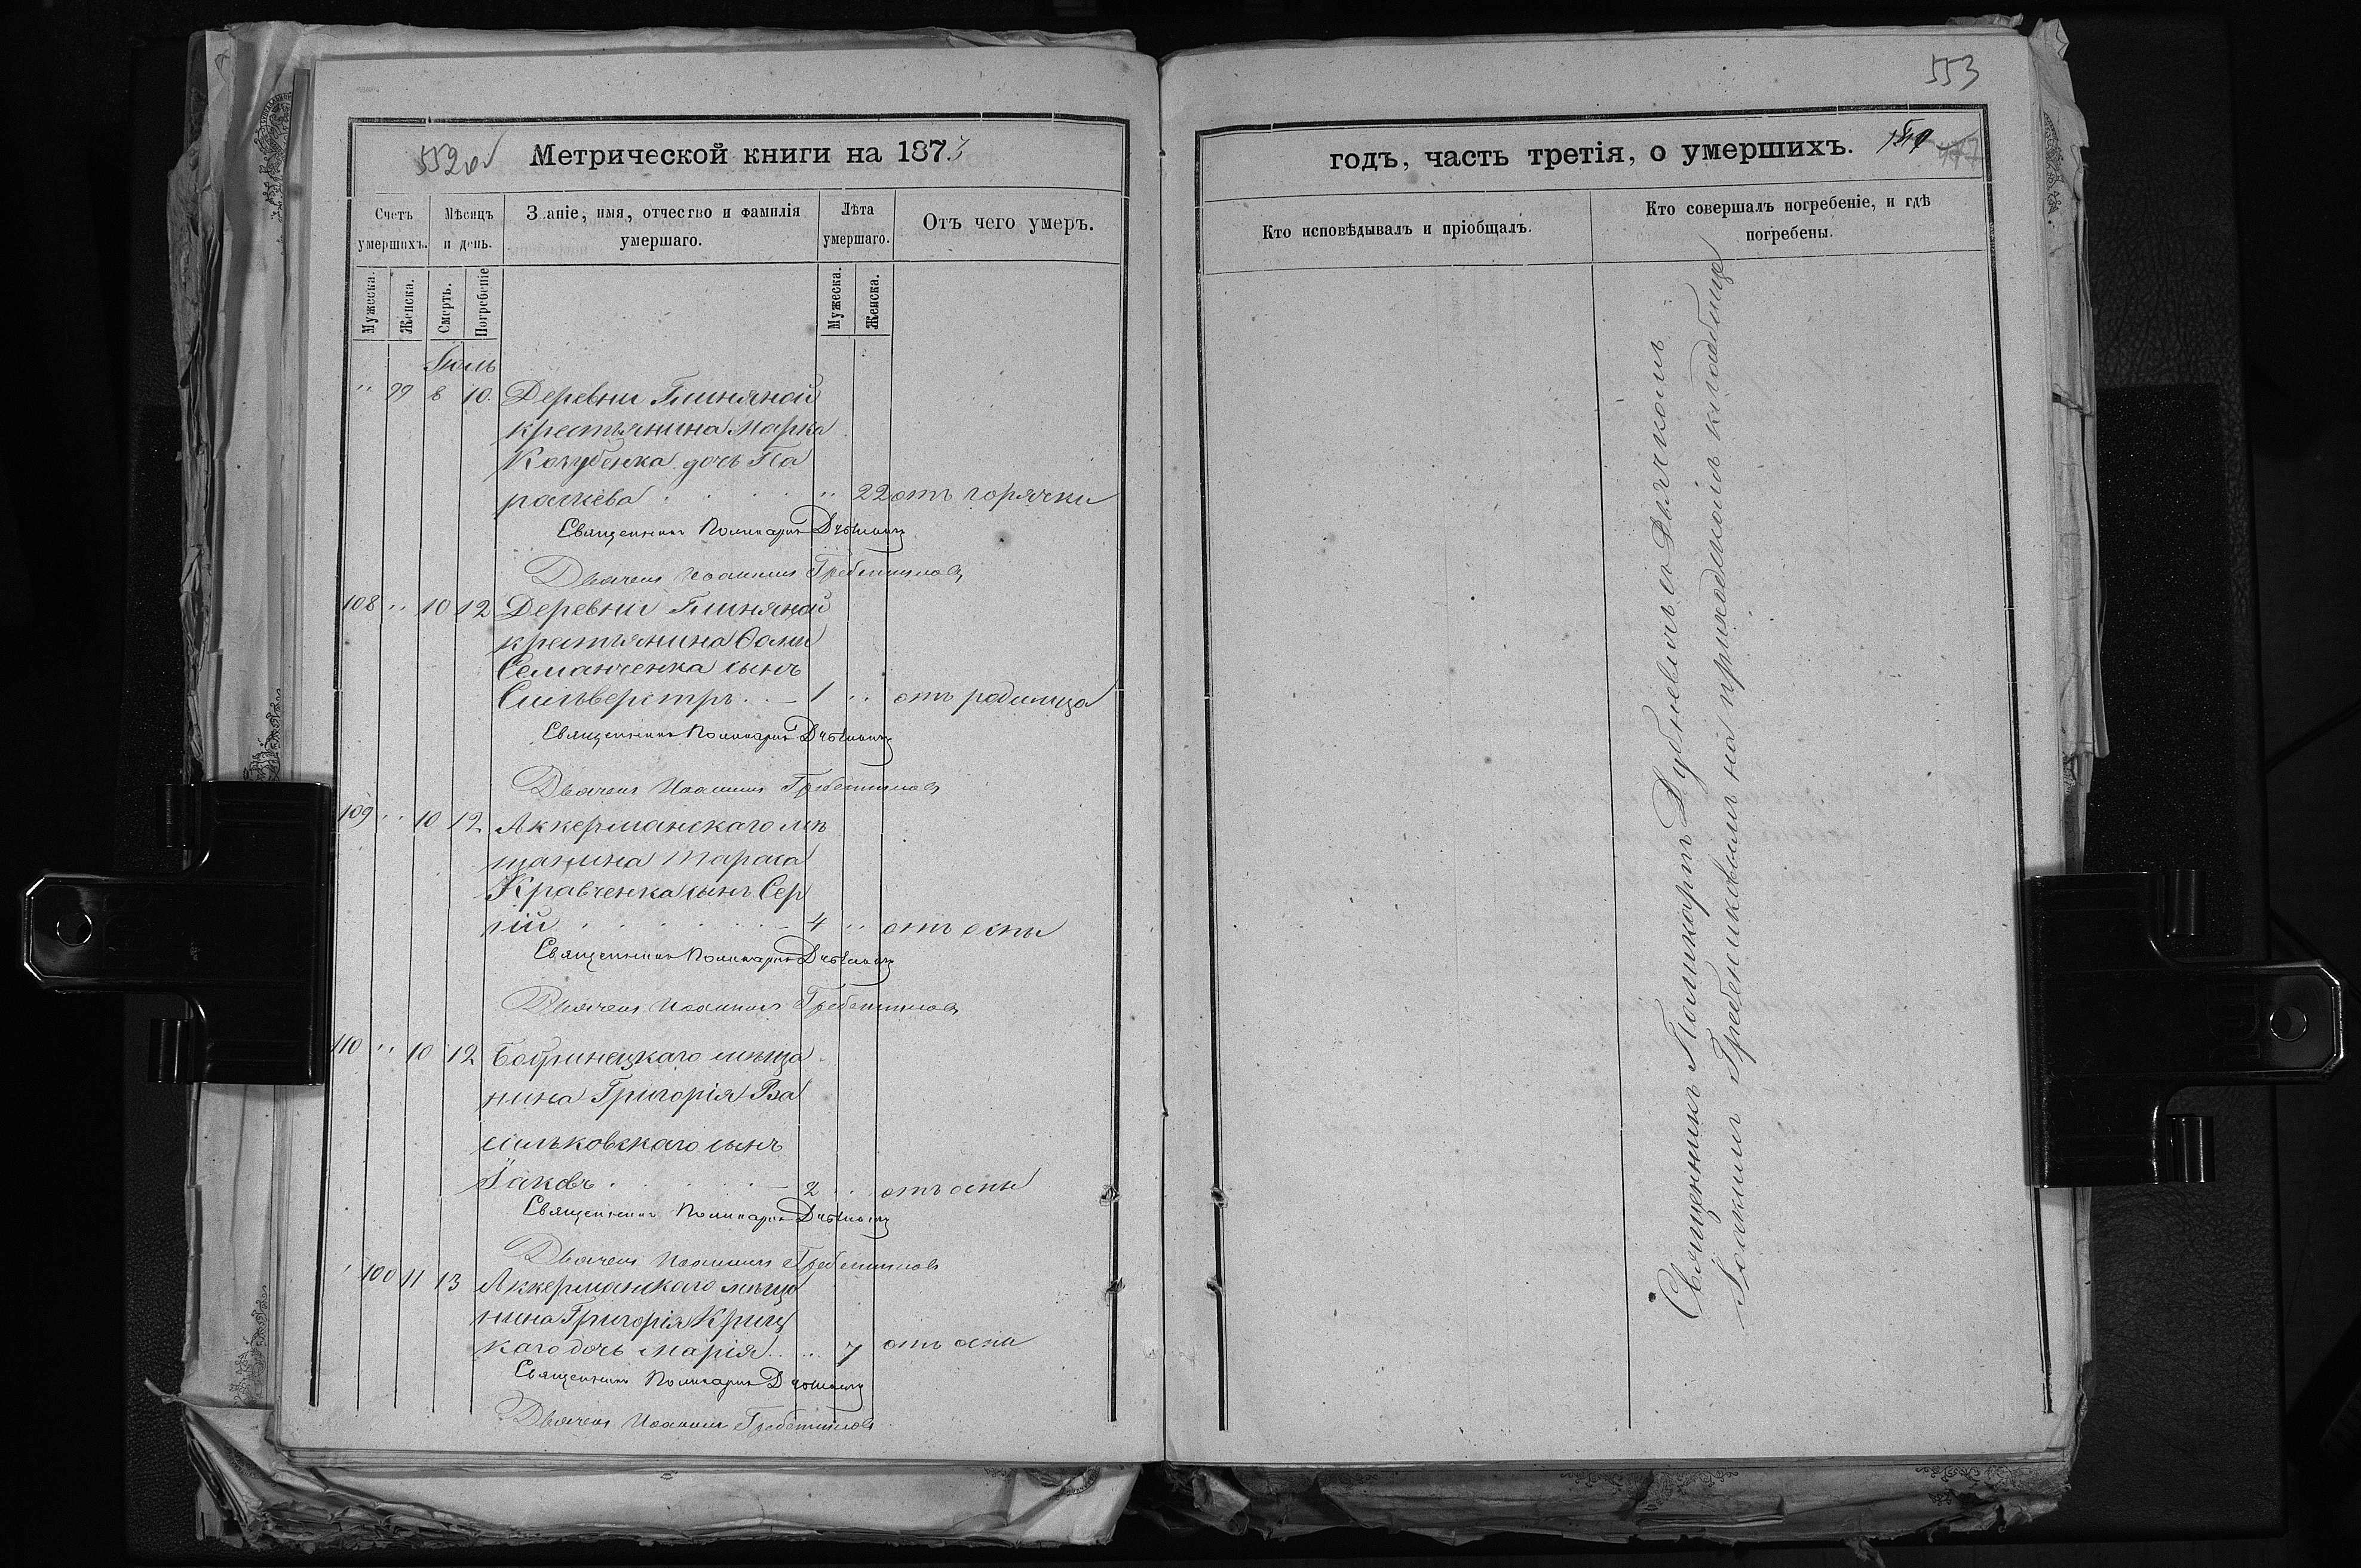 553
552об Метрической книги на 1873
годъ, часть третія, о умершихъ.
Счетъ умершихъ.
Мѣсяцъ и день.
Званіе, имя, отчество и фамилія умершаго.
Лѣта умершаго.
Отъ чего умеръ.
Кто исповѣдывалъ и пріобщалъ.
Кто совершалъ погребеніе, и гдѣ погребены.
Мужеска.
Женска.
Смерть.
Погребеніе
Мужеска.
Женска.
Іюль
" 99 8 10. Деревни Глиняной
крестьянина Марка
Кочубенка дочь Па
раскева " 22 отъ горячки
Священникъ Поликарпъ
Дьячекъ Иоакимъ Гребенниковъ
108 " 10 12 Деревни Глиняной
крестьянина Ѳомы
Семанченка сынъ
Сильверстръ 1 " отъ родимца
Священникъ Поликарпъ
Дьячекъ Иоакимъ Гребенниковъ
109 " 10 12 Аккерманскаго мѣ
щанина Тараса
Кравченка сынъ Сер
гій 4 " отъ оспы
Священникъ Поликарпъ
Дьячекъ Иоакимъ Гребенниковъ
110 " 10 12 Бобринецкаго мѣща
нина Григорія Ва
сильковскаго сынъ
Іаковъ 2 " отъ оспы
Священникъ Поликарпъ
Дьячекъ Иоакимъ Гребенниковъ
100 11 13 Аккерманскаго мѣща
нина Григорія Криц
каго дочь Марія " 7 отъ оспы
Священникъ Поликарпъ
Дьячекъ Иоакимъ Гребенниковъ
Священникъ Поликарпъ съ Дьячкомъ
Іоакимъ Гребенниковымъ на приходскомъ кладбище